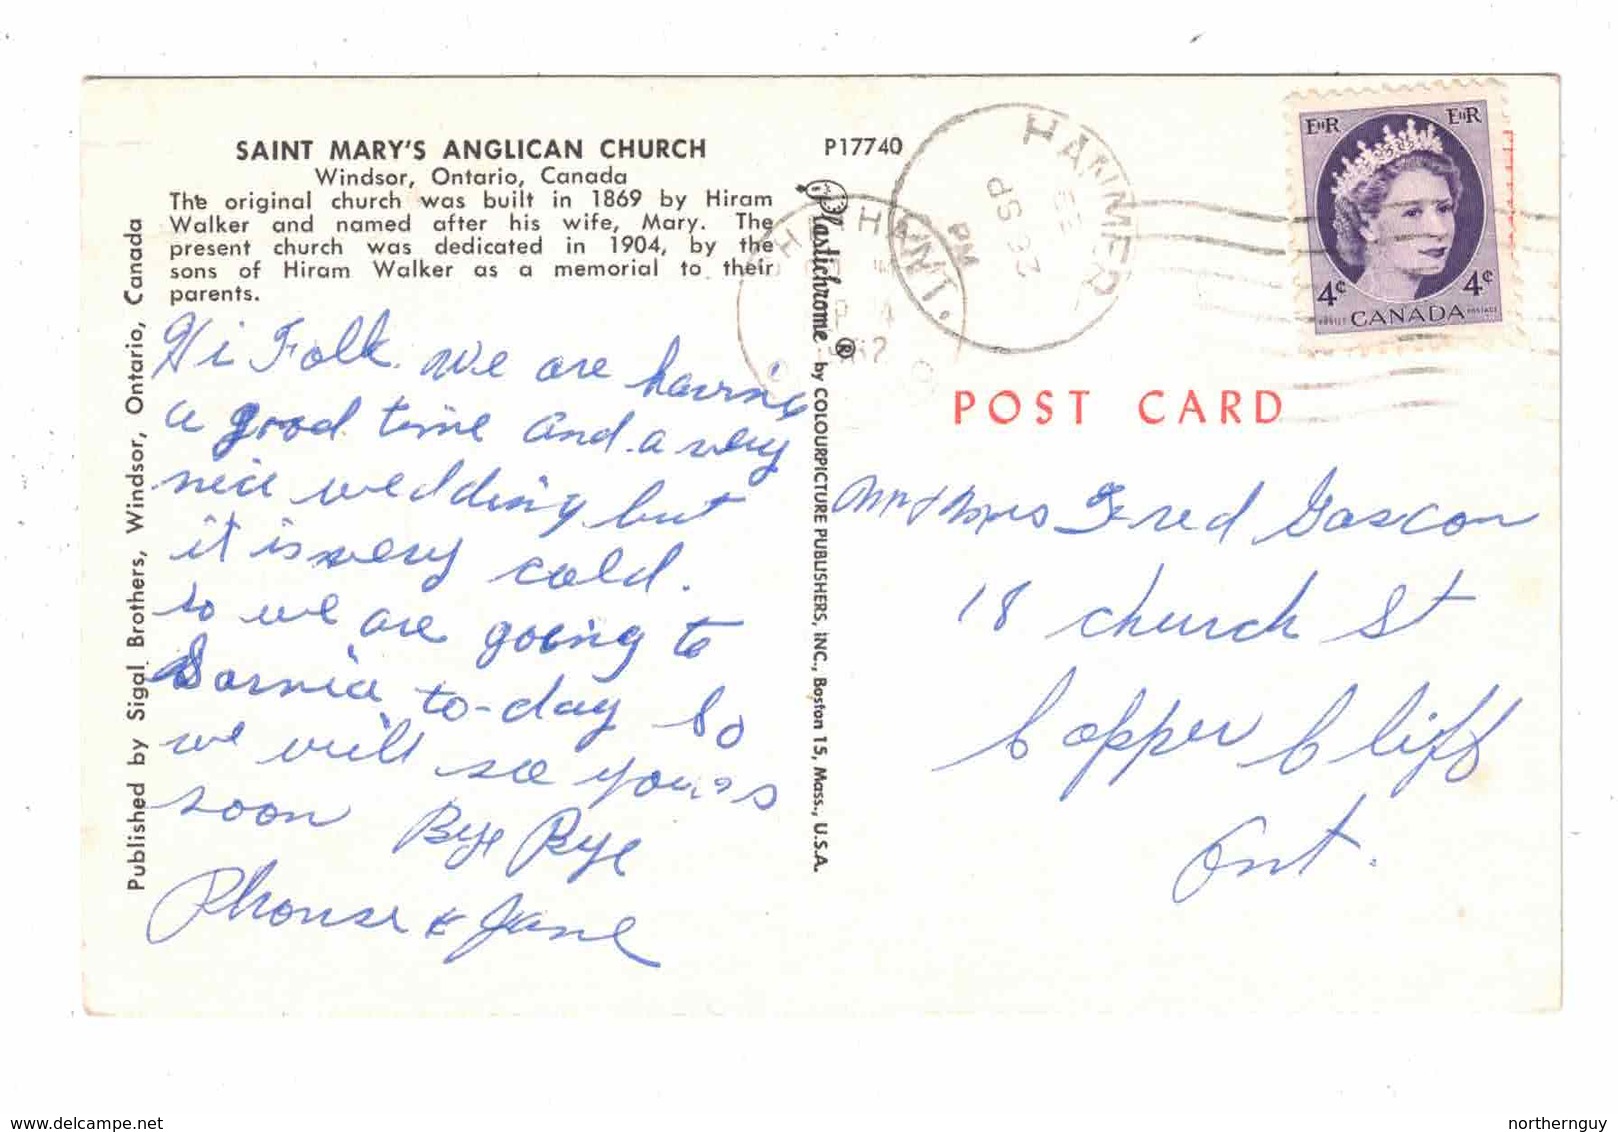 SAINT MARY'S ANGLICAN CHURCH
Windsor, Ontario, Canada
The original church was built in 1869 by Hiram
Walker and named after his wife, Mary. The
present church was dedicated in 1904, by the
sons of Hiram Walker as a memorial to their
parents.
Hi Folk. We are having
a good time and a very
nice wedding but
it is very cold.
so we are going to
Sarnia to-day so
we will see you
soon Bye Bye
Phonse & Jane
Published by Sigal Brothers, Windsor, Ontario, Canada
P17740
Plastichrome ® by COLOURPICTURE PUBLISHERS, INC., Boston 15, Mass., U.S.A.
HANMER
ONT.
PM
EIIR EIIR
4¢ 4¢
POSTES CANADA POSTAGE
POST CARD
Mr & Mrs Fred Gascon
18 church St
Copper Cliff
Ont.
www.delcampe.net
northernguy